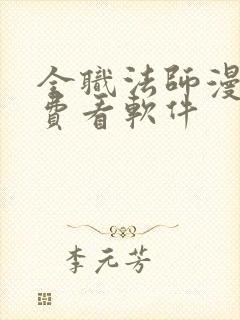 全職法師漫
費看軟件
李元芳